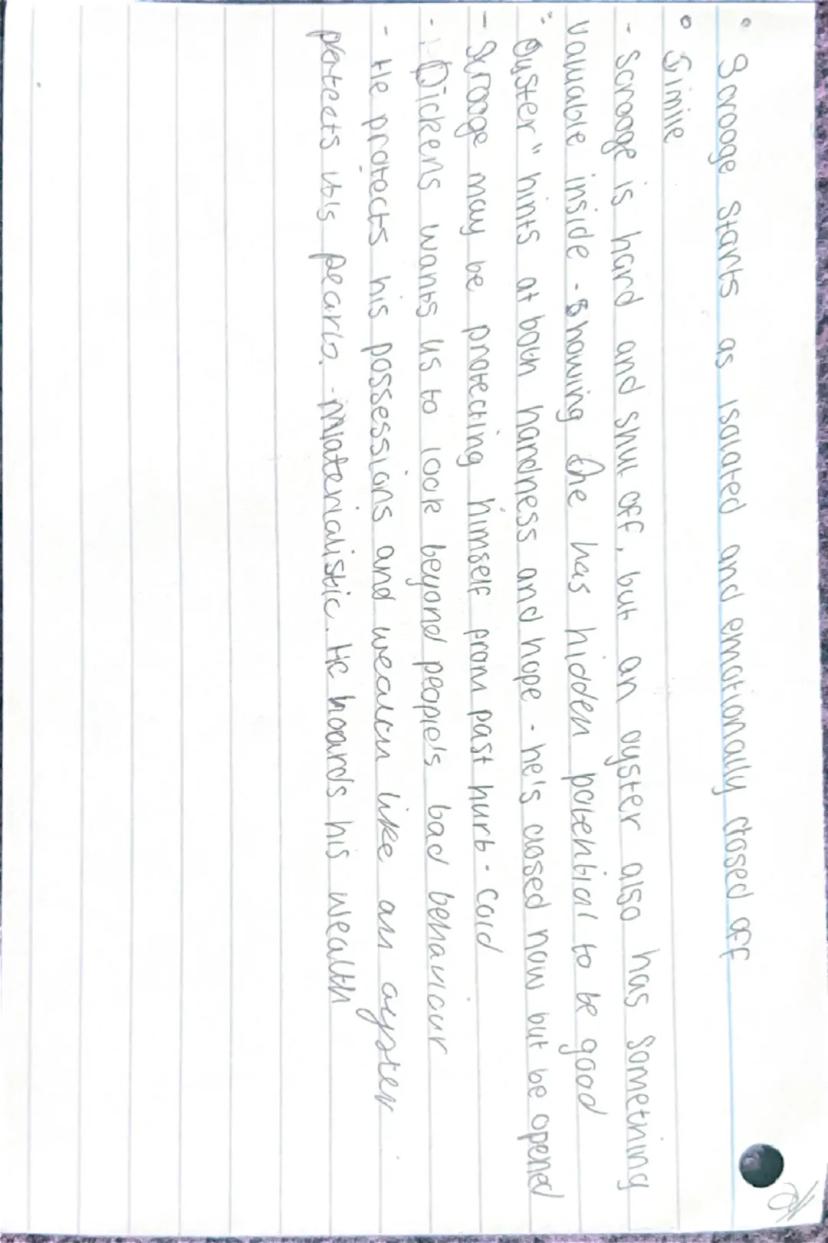 • Scrooge starts as isolated and emotionally closed off
• Simile
- Scrooge is hard and shut off, but an oyster also has something
valuable inside - showing he has hidden potential to be good
"Oyster" hints at both hardness and hope - he's closed now but be opened
- Scrooge may be protecting himself from past hurt - cold
- Dickens wants us to look beyond people's bad behaviour
- He protects his possessions and wealth like an oyster
protects it's pearls. - Materialistic. He hoards his wealth